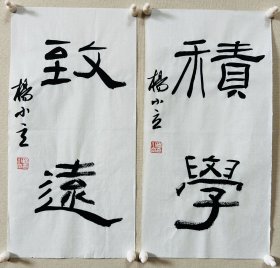 積學
楊小立
致遠
楊小立